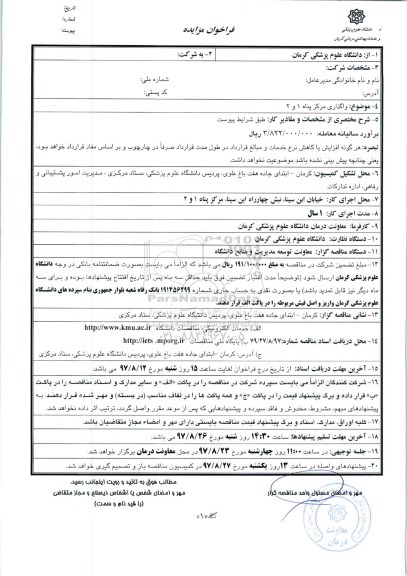 تاریخ:
شماره:
پیوست:
دانشگاه علوم پزشکی
و خدمات بهداشتی درمانی کرمان
فراخوان مزایده
۱- از: دانشگاه علوم پزشکی کرمان
۲- به شرکت:
۳- مشخصات شرکت:
نام و نام خانوادگی مدیرعامل:
شماره ملی:
آدرس:
کد پستی:
۴- موضوع: واگذاری مرکز پناه ۱ و ۲
۵- شرح مختصری از مشخصات و مقادیر کار: طبق شرایط پیوست
برآورد سالیانه معامله: ۳/۸۲۲/۰۰۰/۰۰۰ ریال
تبصره: هر گونه افزایش یا کاهش نرخ خدمات و مبالغ قرارداد در طول مدت قرارداد صرفاً در چارچوب و بر اساس مفاد قرارداد خواهد بود، یعنی چنانچه پیش بینی نشده باشد موضوعیت نخواهد داشت.
۶- محل تشکیل کمیسیون: کرمان - ابتدای جاده هفت باغ علوی، پردیس دانشگاه علوم پزشکی، ستاد مرکزی، مدیریت امور پشتیبانی و رفاهی، اداره تدارکات
۷- محل اجرای کار: خیابان ابن سینا، نبش چهارراه ابن سینا، مرکز پناه ۱ و ۲
۸- مدت اجرای کار: ۱ سال
۹- کارفرما: معاونت درمان دانشگاه علوم پزشکی کرمان
۱۰- دستگاه نظارت: دانشگاه علوم پزشکی کرمان
۱۱- دستگاه مناقصه گزار: معاونت توسعه مدیریت و منابع دانشگاه
۱۲- مبلغ تضمین شرکت در مناقصه به مبلغ ۱۹۱/۱۰۰/۰۰۰ ریال می باشد که الزاماً می بایست بصورت ضمانتنامه بانکی در وجه دانشگاه علوم پزشکی کرمان ارسال شود (توضیحاً مدت اعتبار تضمین فوق باید حداقل سه ماه پس از تاریخ افتتاح پیشنهادها بوده و برای سه ماه دیگر نیز قابل تمدید باشد) یا بصورت نقدی به حساب جاری شماره ۱۹۱۴۵۶۴۹۹ بانک رفاه شعبه بلوار جمهوری بنام سپرده های دانشگاه علوم پزشکی کرمان واریز و اصل فیش مربوطه را در پاکت الف قرار دهند.
۱۳- نشانی مناقصه گزار: کرمان - ابتدای جاده هفت باغ علوی، پردیس دانشگاه علوم پزشکی، ستاد مرکزی
الف) خدمات الکترونیکی مناقصات دانشگاه http://www.kmu.ac.ir
۱۴- محل دریافت اسناد مناقصه شماره: ب) پایگاه ملی مناقصات http://iets.mporg.ir
ج) آدرس: کرمان - ابتدای جاده هفت باغ علوی، پردیس دانشگاه علوم پزشکی، ستاد مرکزی
۱۵- آخرین مهلت دریافت اسناد: از تاریخ درج فراخوان لغایت ساعت ۱۵ روز شنبه مورخ ۹۷/۸/۱۲ می باشد.
۱۶- شرکت کنندگان الزاماً می بایست سپرده شرکت در مناقصه را در پاکت «الف» و سایر مدارک و اسناد مناقصه را در پاکت «ب» قرار داده و برگ پیشنهاد قیمت را در پاکت «ج» و همه پاکت ها را در لفاف مناسب (در بسته) و مهر شده قرار دهند. به پیشنهادهای مبهم، مشروط، مخدوش و فاقد سپرده و پیشنهادهایی که پس از موعد مقرر واصل گردد، ترتیب اثر داده نخواهد شد.
۱۷- کلیه اوراق، مدارک، اسناد و برگ پیشنهاد قیمت مناقصه بایستی دارای مهر و امضاء مجاز متقاضیان باشد.
۱۸- آخرین مهلت تسلیم پیشنهادها: ساعت ۱۴:۳۰ روز شنبه مورخ ۹۷/۸/۲۶ می باشد.
۱۹- جلسه توجیهی: در ساعت ۱۱:۰۰ روز چهارشنبه مورخ ۹۷/۸/۲۳ در محل معاونت درمان برگزار خواهد شد.
۲۰- پیشنهادهای واصله در ساعت ۱۳ روز یکشنبه مورخ ۹۷/۸/۲۷ در کمیسیون مناقصه باز و تصمیم گیری خواهد شد.
مهر و امضای مسئول واحد مناقصه گزار
مطالب فوق به تائید و رویت اینجانب رسید.
مهر و امضای شخص یا اشخاص ذیصلاح و مجاز متقاضی
(با قید نام و سمت)
معاونت درمان